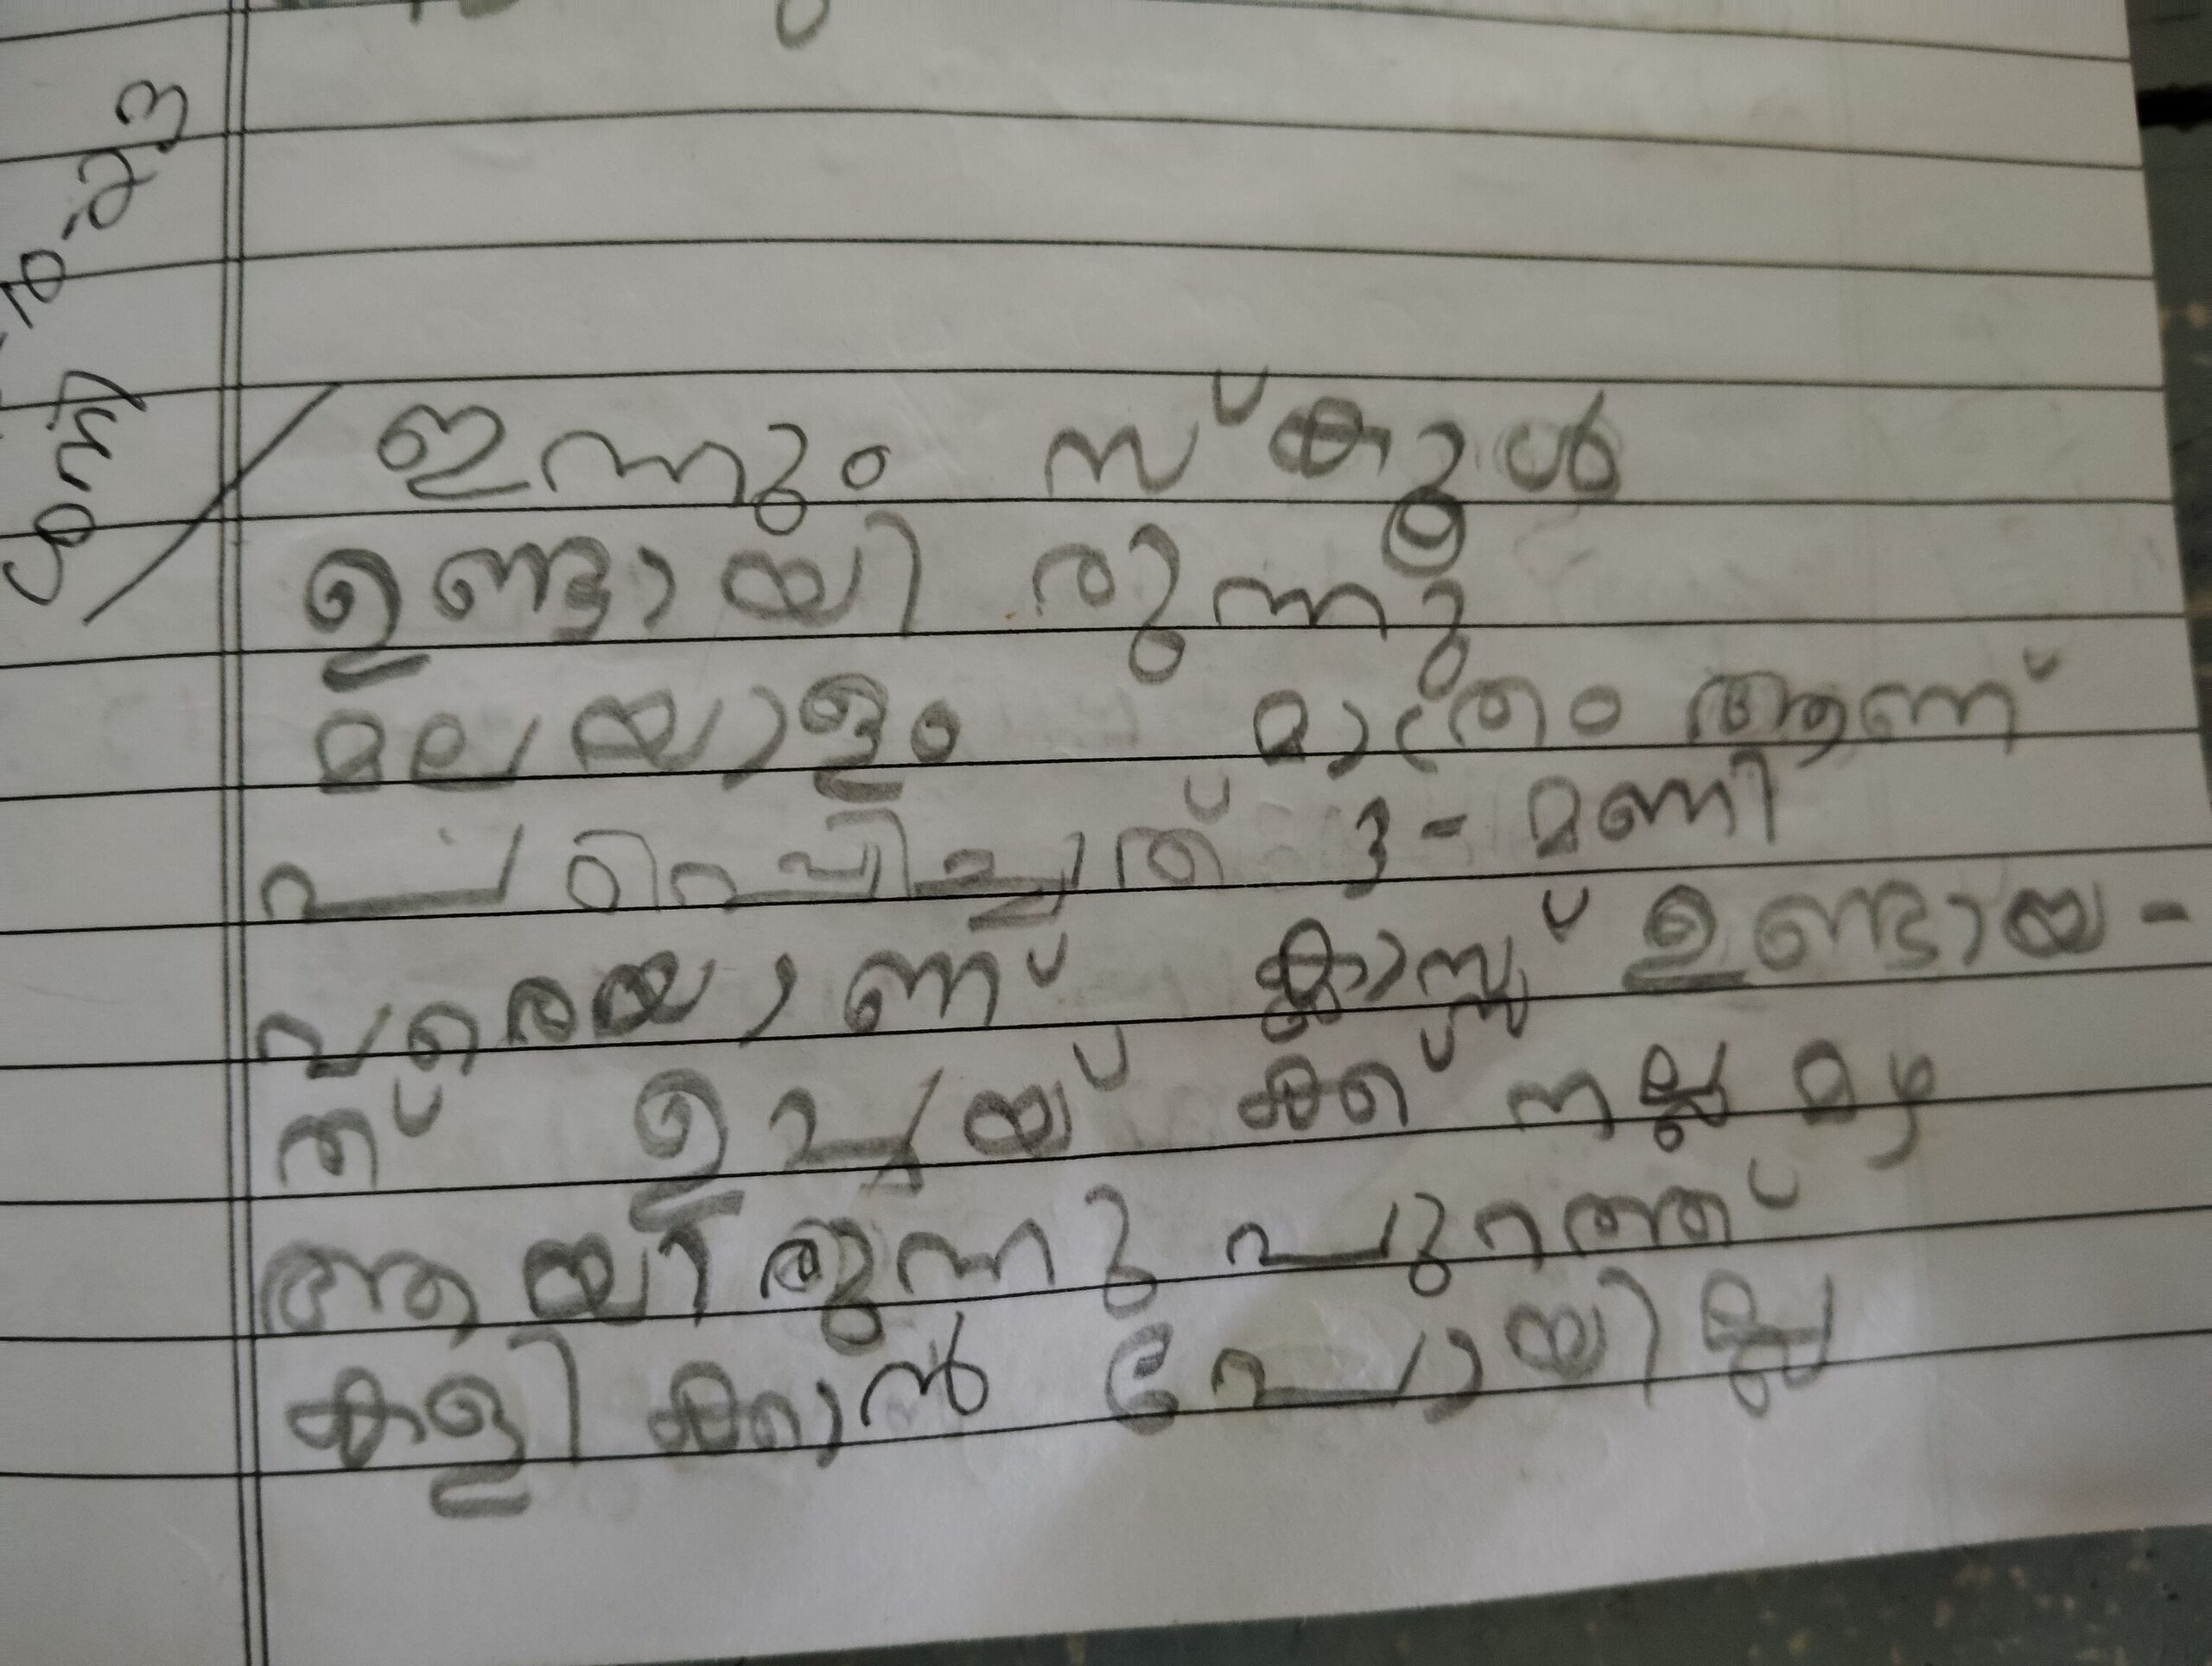 ഇന്നും സ്കൂൾ
ഉണ്ടായി രുന്നു
മലയാളം മാത്രം ആണ്
പഠിപ്പിച്ചത് 3 - മണി
വരെയാണ് ക്ലാസ്സ് ഉണ്ടായ -
ത് ഉച്ചയ്ക്ക് നല്ല മഴ
ആയിരുന്നു പുറത്ത്
കളിക്കാൻ പോയില്ല